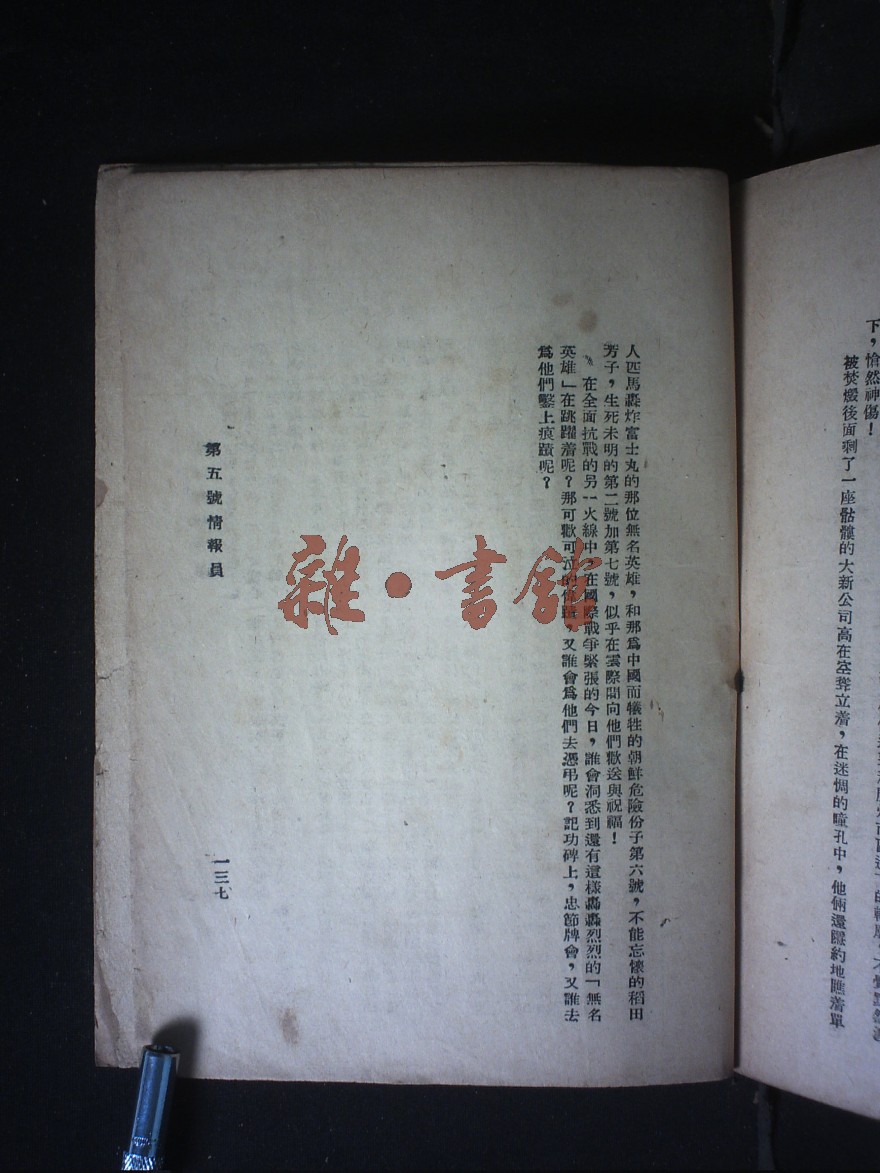 下，愴然神傷！
被焚燬後面剩了一座骷髏的大新公司高在空聳立着，在迷惘的瞳孔中，他倆還隱約地瞧着單
人匹馬轟炸富士丸的那位無名英雄，和那爲中國而犧牲的朝鮮危險份子第六號，不能忘懷的稻田
芳子，生死未明的第二號加第七號，似乎在雲際間向他們歡送與祝福！
在全面抗戰的另一火線中，在國際戰爭緊張的今日，誰會洞悉到還有這樣轟轟烈烈的「無名
英雄」在跳躍着呢？那可歌可泣的偉蹟，又誰會爲他們去憑弔呢？記功碑上，忠節牌會，又誰去
爲他們鑿上痕蹟呢？
第五號情報員
一三七
雜·書館